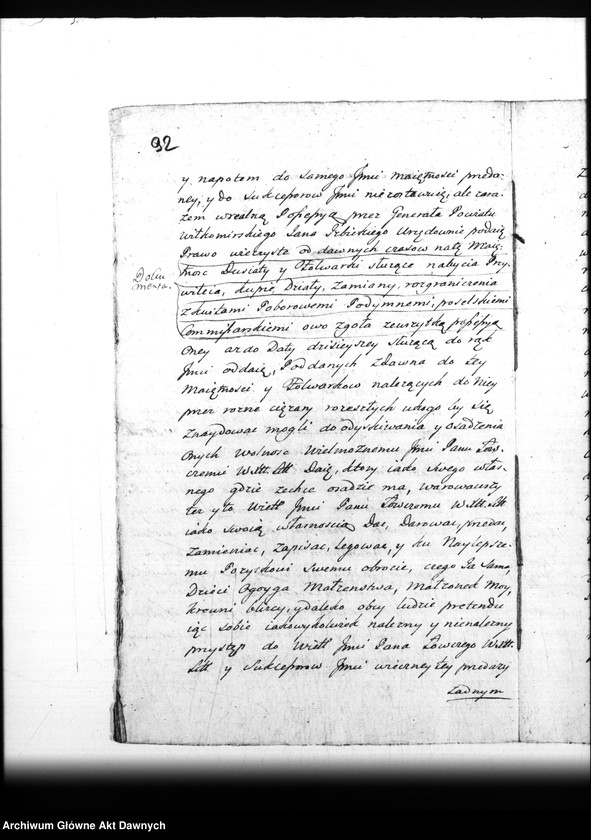 92
y napotom do samego Jmci maiętnosci przeda-
ney, y do sukcessorow Jmci niezostawuię, ale zara-
zem w realną Possessyą przez Generała Powiatu
Wiłkomirskiego Jana Urzędownie podaię
Prawo wieczyste od dawnych czasow na tę Maię-
tnosc Dusiaty y Folwarki służące nabycia Przy-
Doku
menta.
wileia, kupie Działy, zamiany, rozgraniczenia
z kwitami Poborowemi Podymnemi, poselskiemi
Commissarskiemi owo zgoła ze wszytką possessyą
Oney az do Daty dzisieyszey służącą do rąk
Jmci oddaię, Poddanych zdawna do tey
Maiętnosci y Folwarkow należących do Niey
przez rozne cięzary rozeszłych u kogo by się
znaydować mogli do odyskiwania y osadzenia
Onych wolnosc Wielmożnemu Jmci Panu Łow-
czemu W. Litt. Daię, ktory iako swego włas-
nego gdzie zechce osadzic ma, warowawszy
też y to, Wielł Jmci Panu Łowczemu W. Litt
iako swoią własnoscią Dac, Darowac, przedac,
zamieniac, zapisac, legowac, y ku Naylepsze-
mu Pożytkowi Swemu obrocic, czego Ja Sama,
Dzieci Oboyga Małzenstwa, Małzonek Moy,
krewni bliscy, y daleko obcy ludzie pretendu
iąc sobie iakowykolwiek nalezny y nienalezny
przystęp do Wielł Jmci Pana Łowczego W.
Litt y Sukcessorow Jmci wieczney tey przedazy
żadnym
Archiwum Główne Akt Dawnych